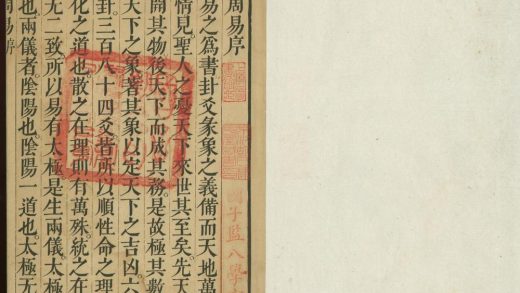 國子監八學
周易序
易之爲書卦爻彖象之義備而天地萬
情見聖人之憂天下來世其至矣先天
開其物後天下而成其務是故極其數
天下之象著其象以定天下之吉凶六
卦三百八十四爻皆所以順性命之理
化之道也散之在理則有萬殊統之在
无二致所以易有太極是生兩儀太極
也兩儀者陰陽也陰陽一道也太極无
周易序